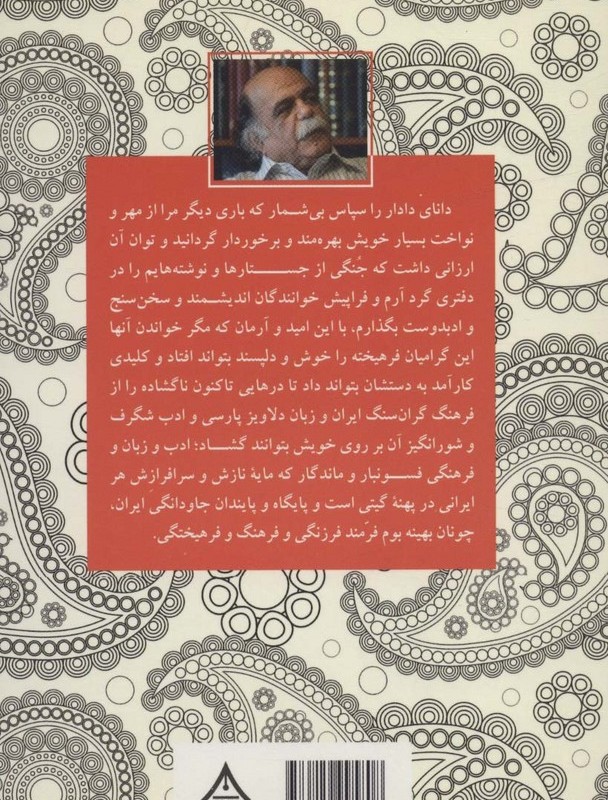 دانایِ دادار را سپاس بی‌شمار که باری دیگر مرا از مهر و
نواخت بسیار خویش بهره‌مند و برخوردار گردانید و توان آن
ارزانی داشت که جُنگی از جستارها و نوشته‌هایم را در
دفتری گرد آرم و فراپیش خوانندگان اندیشمند و سخن‌سنج
و ادبدوست بگذارم، با این امید و آرمان که مگر خواندن آنها
این گرامیان فرهیخته را خوش و دلپسند بتواند افتاد و کلیدی
کارآمد به دستشان بتواند داد تا درهایی تاکنون ناگشاده را از
فرهنگ گران‌سنگ ایران و زبان دلاویز پارسی و ادب شگرف
و شورانگیز آن بر روی خویش بتوانند گشاد؛ ادب و زبان و
فرهنگی فسونبار و ماندگار که مایهٔ نازش و سرافرازش هر
ایرانی در پهنهٔ گیتی است و پایگاه و پایندان جاودانگی ایران،
چونان بهینه بوم فرّمند فرزنگی و فرهنگ و فرهیختگی.